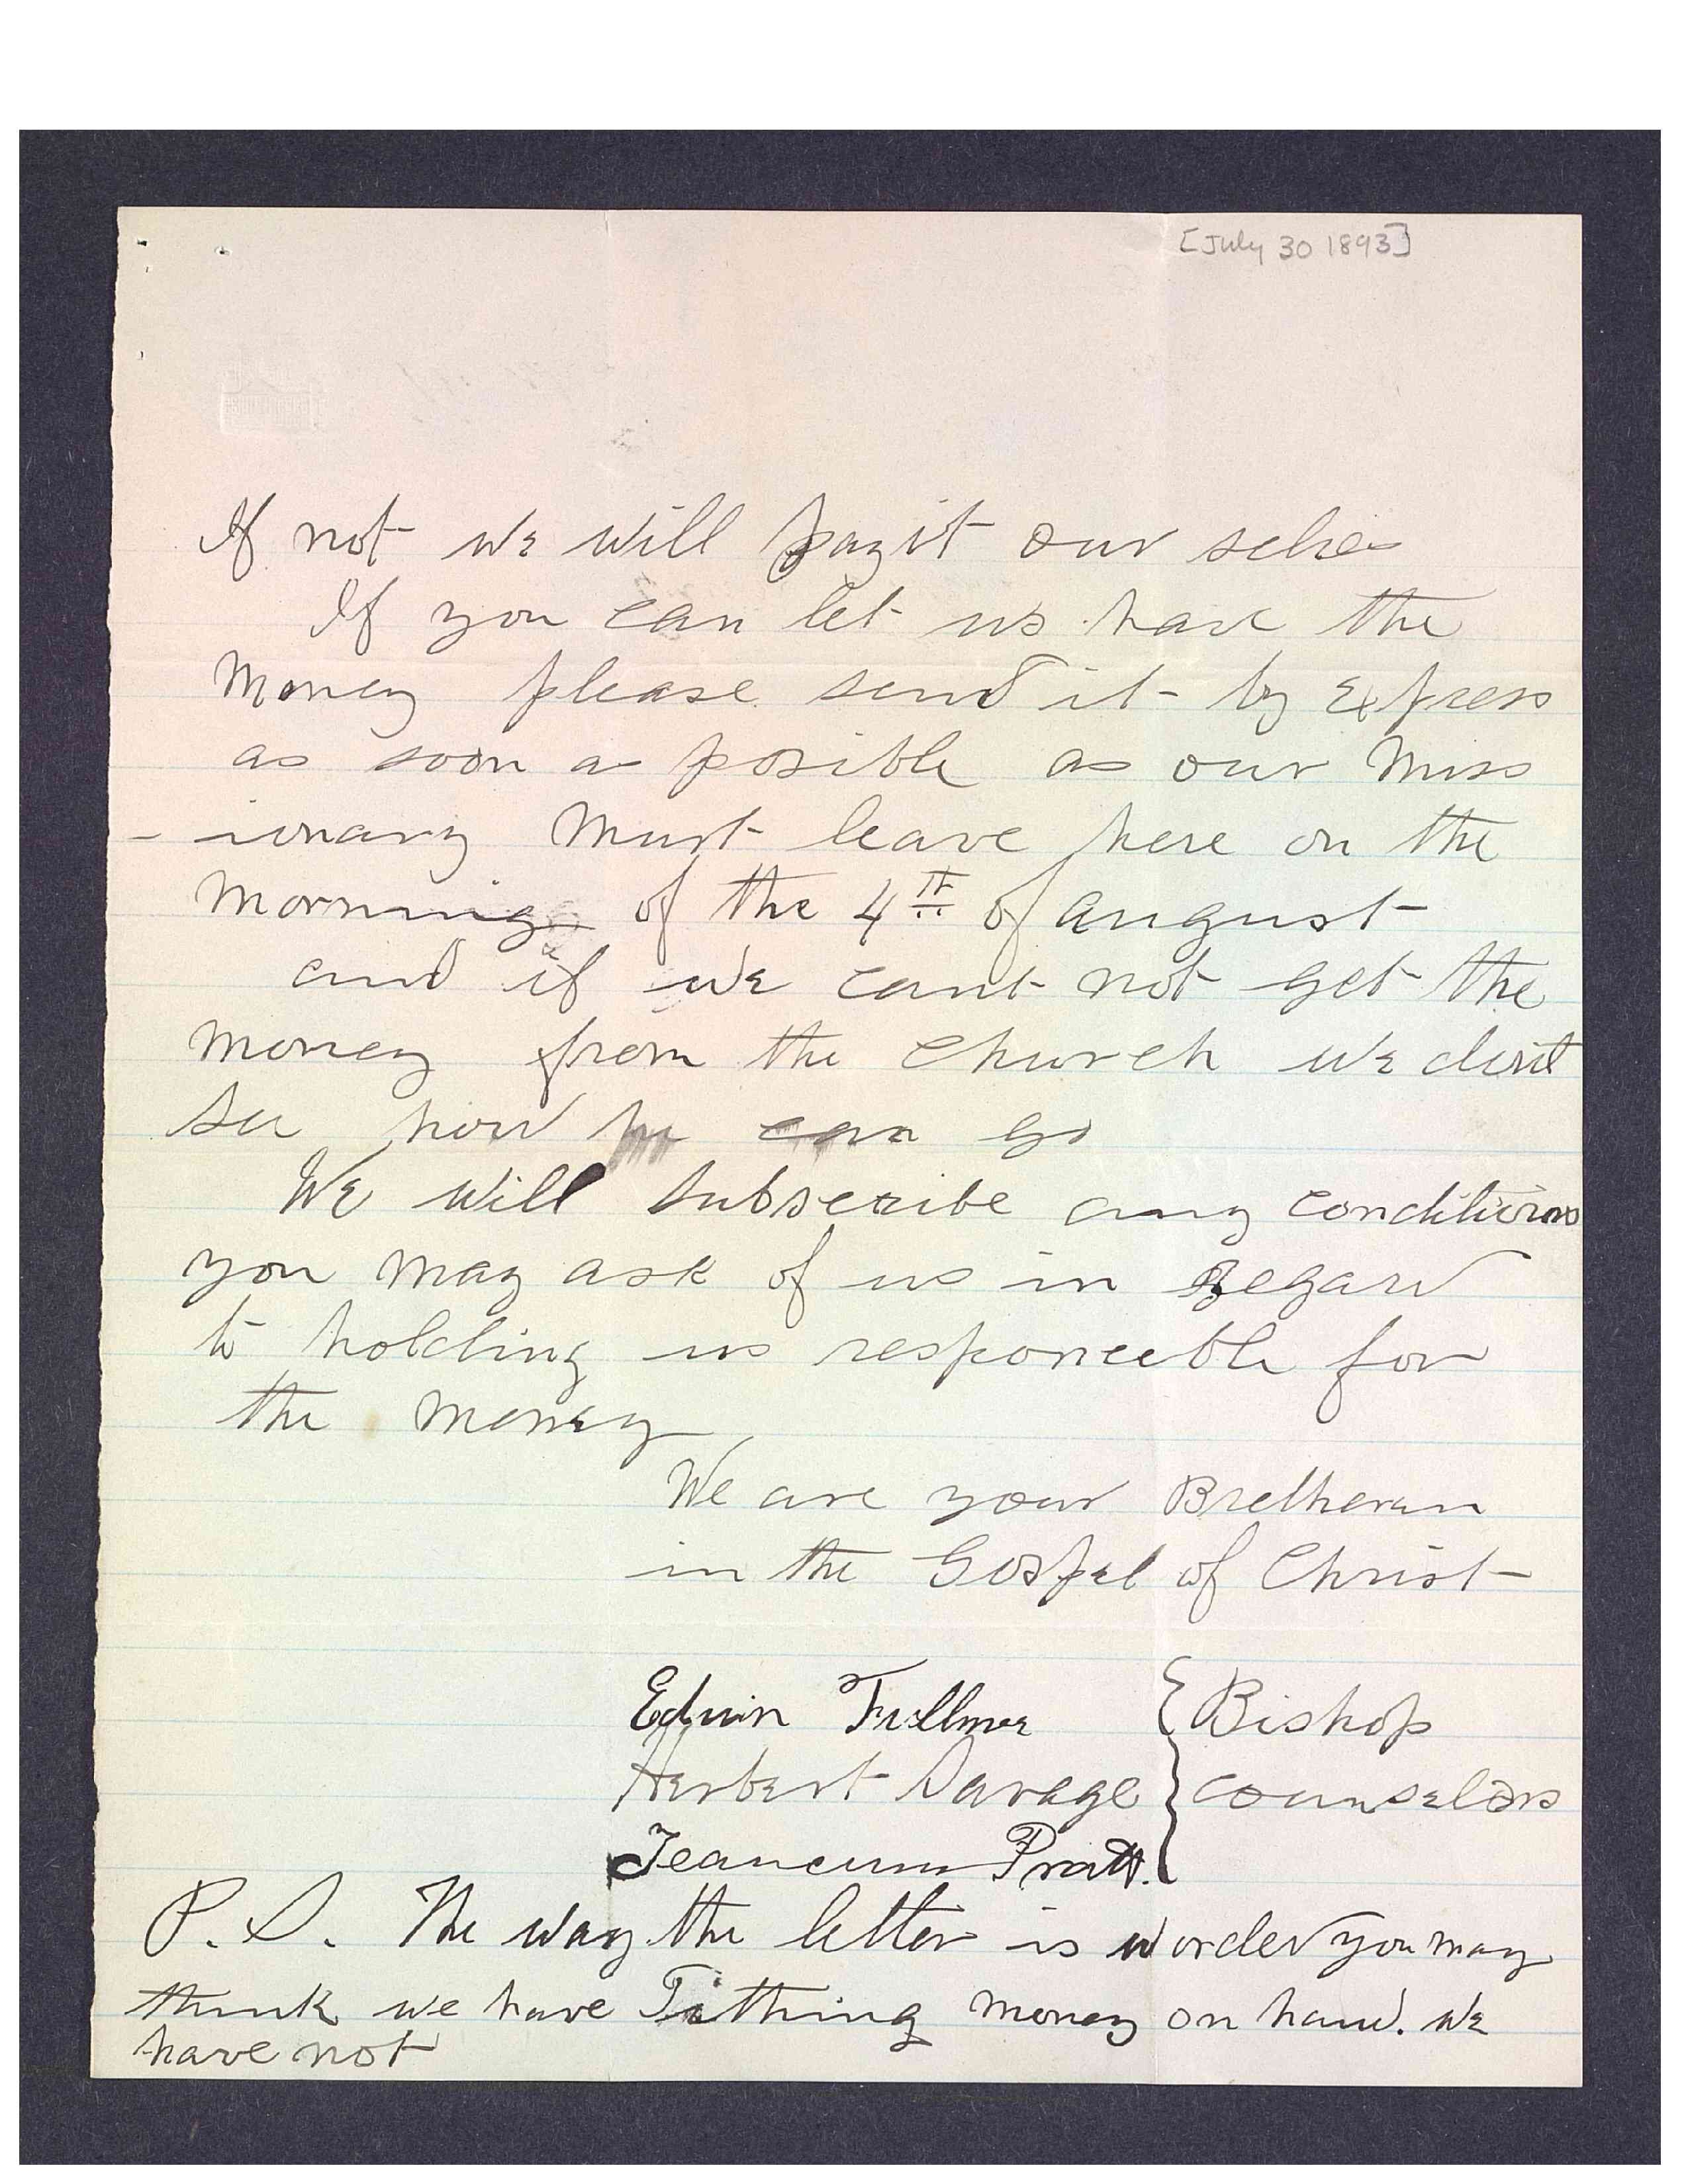 [July 30 1893]
If not we will pay it our selves
If you can let us have the
Money please send it by Express
as soon as posible as our Miss
-ionary Must leave here on the
Morning of the 4th of august
and if we cant not get the
Money from the Church we dont
see how he can go
We will subscribe any conditions
you may ask of us in Regard
to holding us responceble for
the money
We are your Bretheren
in the Gospel of Christ
Edwin Fullmer { Bishop
Herbert Savage } Counselors
Teancum Pratt.
P.S. The way the letter is worded you may
think we have Tithing money on hand. We
have not